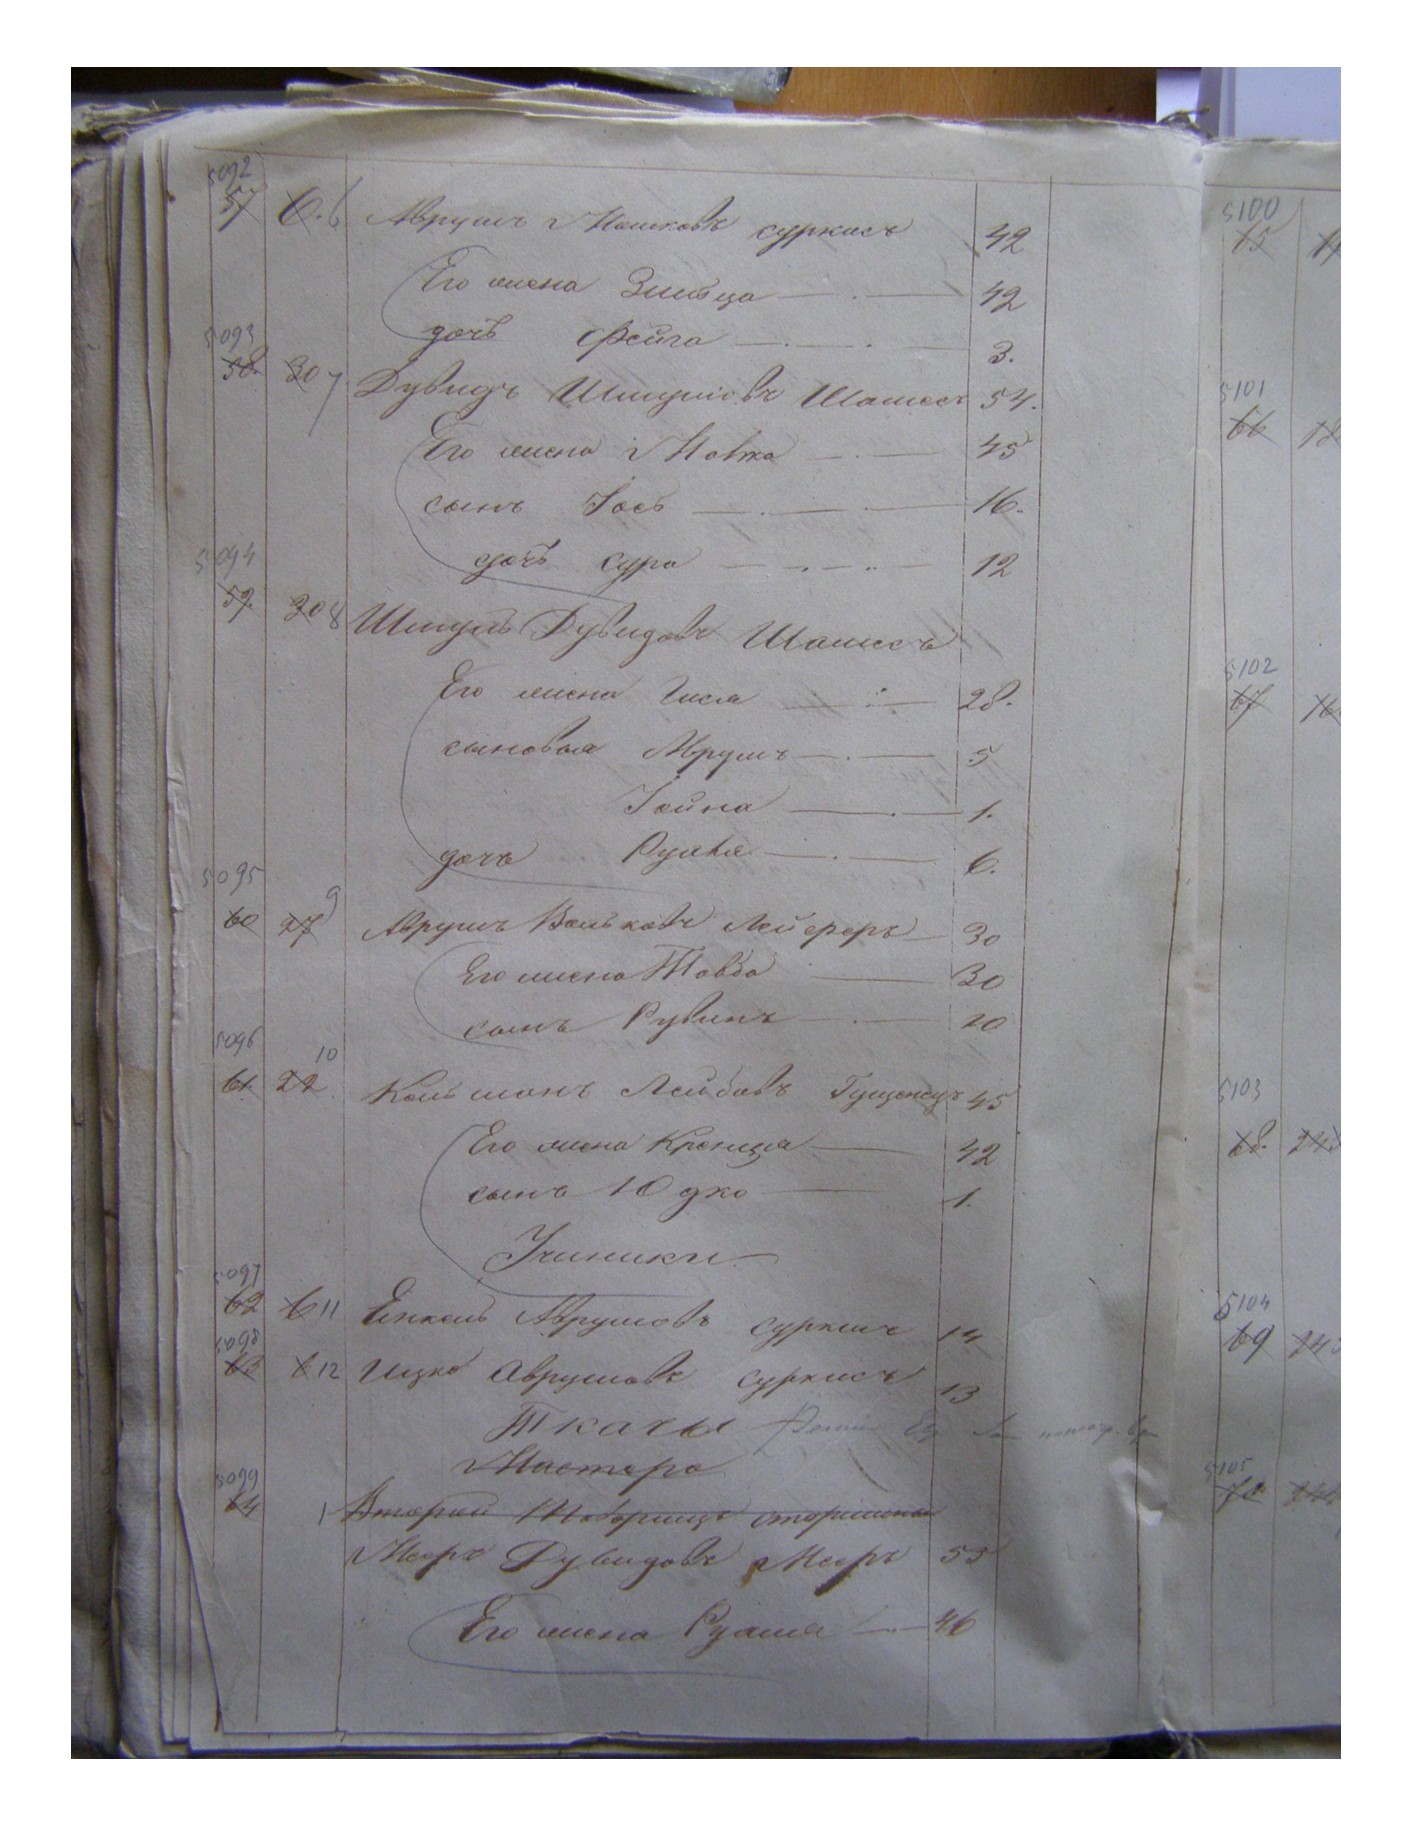 5092
57 6. 6 Аврумъ Мошковъ суркисъ 42
Его жена Зивьца 42
дочь Фейга 3.
5093
58. 30 7 Дувидъ Шмулiовъ Шамесъ 54.
Его жена Мовта 45
сынъ Iось 16.
дочь сура 12
5094
59. 30 8 Шмуль Дувидовъ Шамесъ
Его жена Гися 28.
сыновья Аврумъ 5
Iойна 1.
дочь Рухля 6.
5095
60 27 9 Аврумъ Вольковъ Лейферъ 30
Его жена Товба 30
сынъ Рувинъ 10
5096
61. 22 10 Кольманъ Лейбовъ 45
Его жена Крейнца 42
сынъ Юдко 1.
Ученики
5097
62 6 11 Енкель Аврумовъ суркисъ 14
5098
63 6 12 Ицко Аврумовъ суркисъ 13
Ткачы
Мастера
5099
64 1 Второй
Мееръ Дувидовъ Мееръ 53
Его жена Рухля 46
5100
65
5101
66
5102
67
5103
68.
5104
69
5105
70